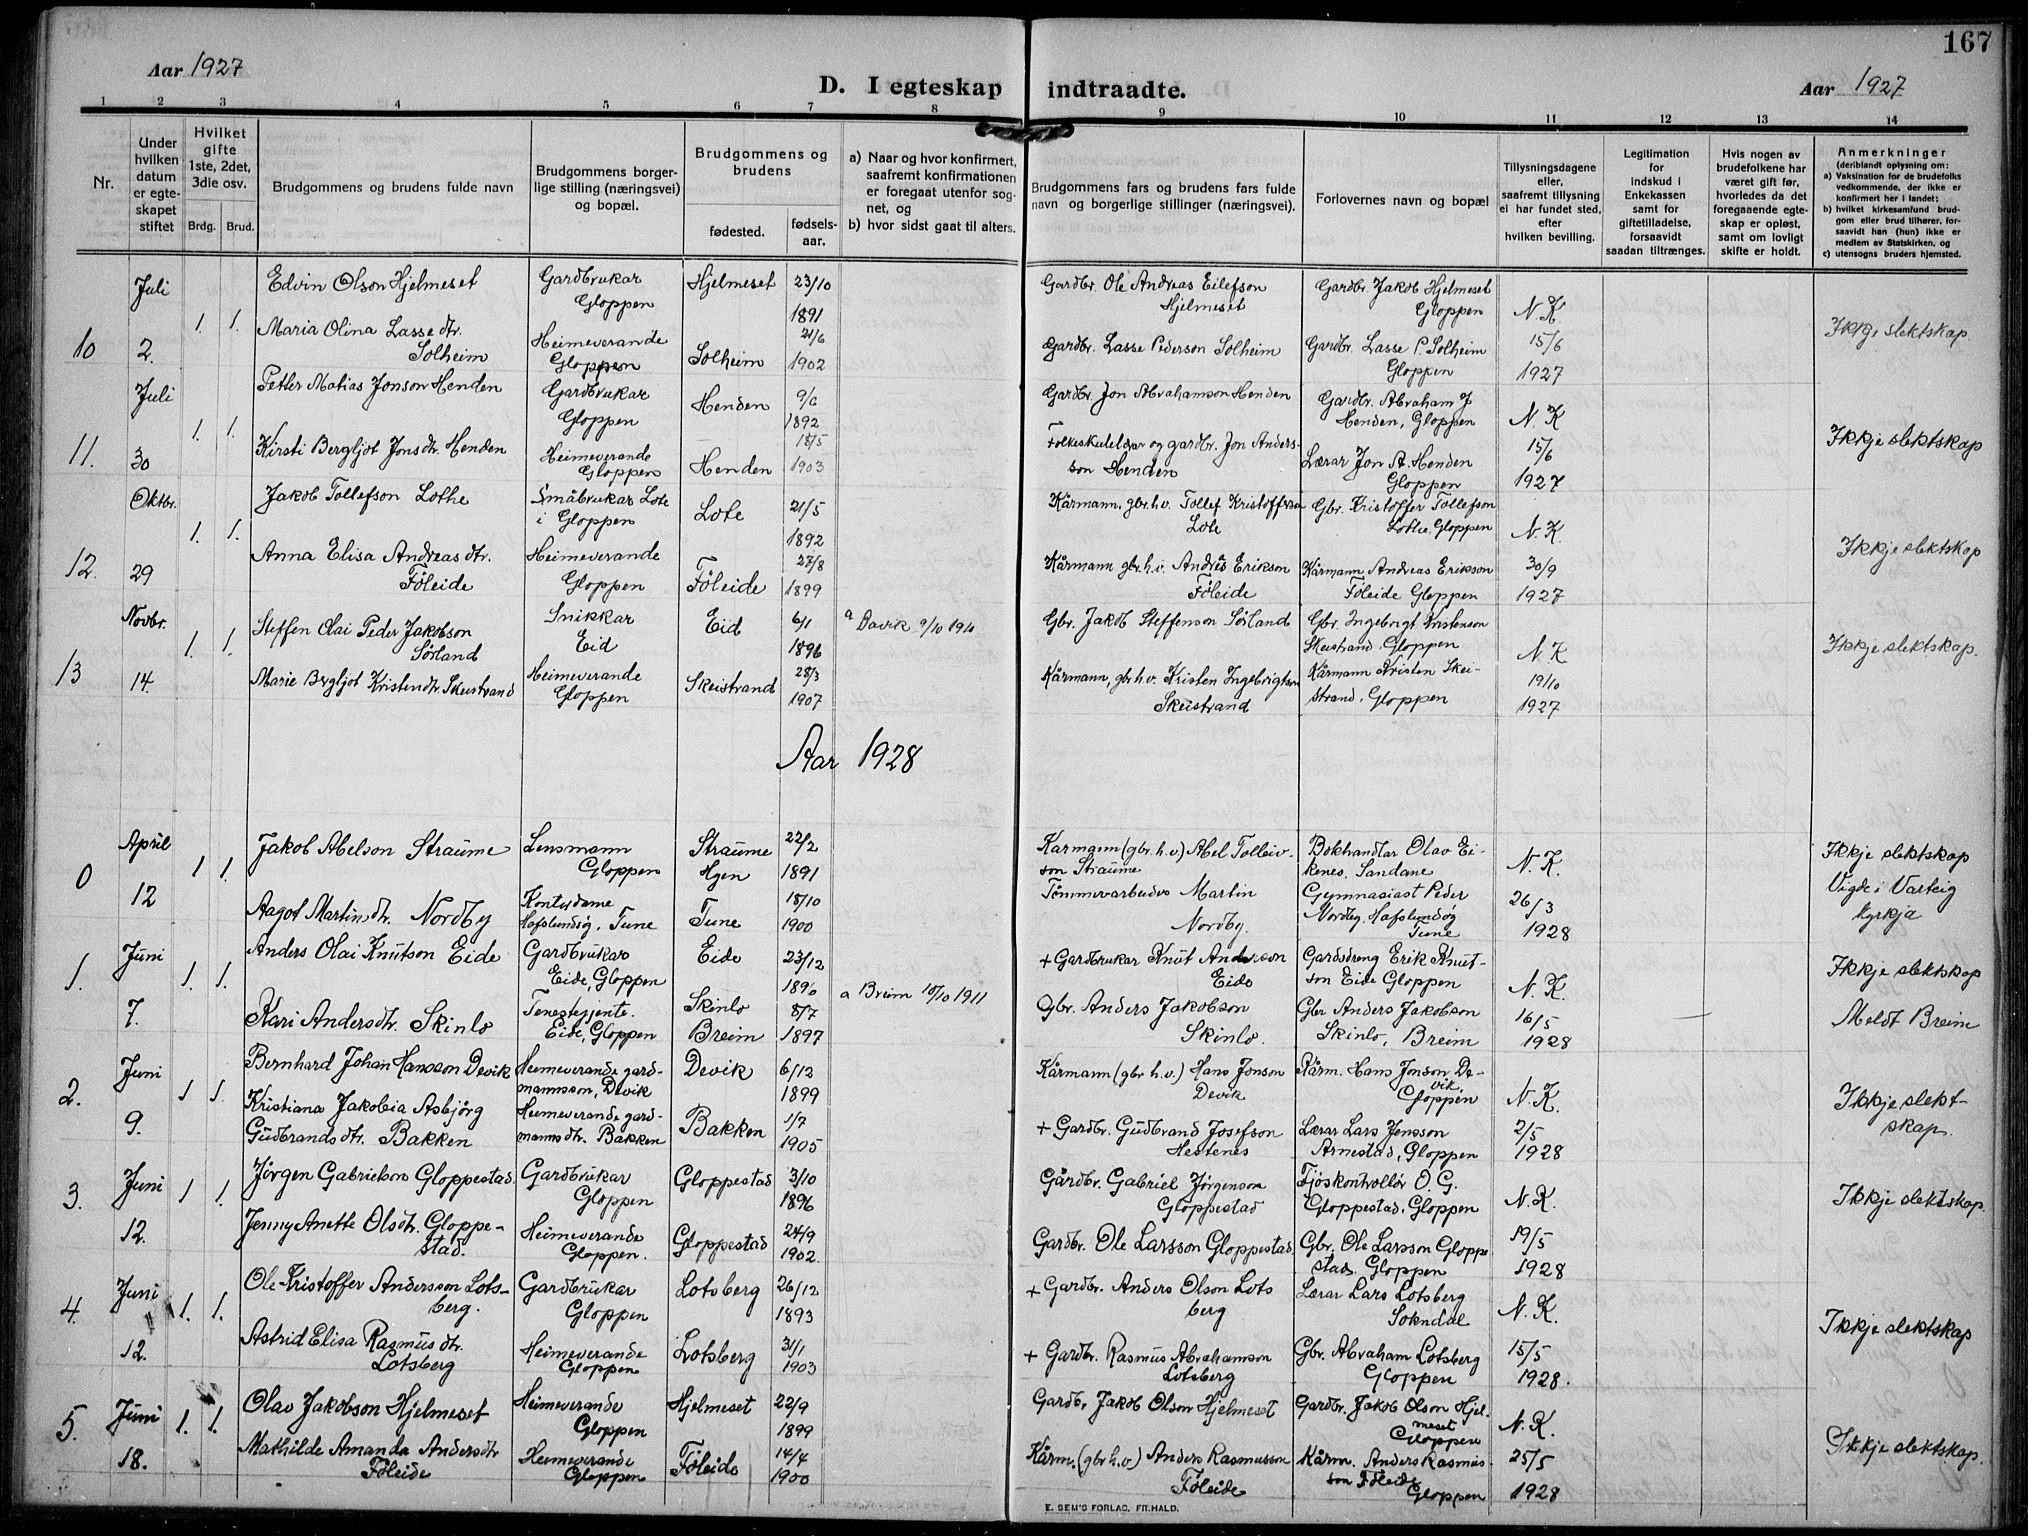 167
Aar 1927
D. I egteskap indtraadte.
Aar 1927
1 2 3 4 5 6 7 8 9 10 11 12 13 14
Nr.
Under hvilken datum er egteskapet stiftet
Hvilket gifte 1ste, 2det, 3die osv.
Brdg. Brud.
Brudgommens og brudens fulde navn
Brudgommens borgerlige stilling (næringsvei) og bopæl.
Brudgommens og brudens
fødested.
fødselsaar.
a) Naar og hvor konfirmert, saafremt konfirmationen er foregaat utenfor sognet, og
b) hvor sidst gaat til alters.
Brudgommens fars og brudens fars fulde navn og borgerlige stillinger (næringsvei).
Forlovernes navn og bopæl
Tillysningsdagene eller, saafremt tillysning ei har fundet sted, efter hvilken bevilling.
Legitimation for indskud i Enkekassen samt for giftetilladelse, forsaavidt saadan tiltrænges.
Hvis nogen av brudefolkene har været gift før, hvorledes da det foregaaende egteskap er opløst, samt om lovligt skifte er holdt.
Anmerkninger
(deriblandt oplysning om:
a) Vaksination for de brudefolks vedkommende, der ikke er konfirmert her i landet;
b) hvilket kirkesamfund brudgom eller brud tilhører, forsaavidt han (hun) ikke er medlem av Statskirken, og
c) utensogns bruders hjemsted.
10 Juli 2. 1. 1.
Edvin Olson Hjelmeset
Gardbrukar Gloppen
Hjelmeset 23/10 1891
Gardbr. Ole Andreas Eilefson Hjelmeset
Gardbr. Jakob Hjelmeset Gloppen
Maria Olina Lassedtr. Solheim
Heimeverande Gloppen
Solheim 21/6 1902
Gardbr. Lasse Pederson Solheim
Gardbr. Lasse P. Solheim Gloppen
N.K 15/6 1927
Ikkje slektskap.
11. Juli 30 1. 1.
Petter Matias Jonson Henden
Gardbrukar Gloppen
Henden 9/6 1892
Gardbr. Jon Abrahamson Henden
Gardbr. Abraham J Henden, Gloppen
Kirsti Bergljot Jonsdtr. Henden
Heimeverande Gloppen
Henden 18/5 1903
Folkeskulelærar og gardbr. Jon Andersson Henden
Lærar Jon A. Henden Gloppen
N.K 15/6 1927
Ikkje slektskap
12. Oktbr. 29 1. 1.
Jakob Tollefson Lothe
Småbrukar Lote i Gloppen
Lote 21/5 1892
Kårmann, gbr.h.v. Tollef Kristofferson Lote
Gbr. Kristoffer Tollefson Lothe, Gloppen
Anna Elisa Andreasdtr. Føleide
Heimeverande Gloppen
Føleide 27/8 1899
Kårmann gbr.h.v. Andrés Erikson Føleide
Kårmann Andreas Erikson Føleide Gloppen
N.K. 30/9 1927
Ikkje slektskap
13 Novbr. 14. 1. 1.
Steffen Olai Peder Jakobson Sørland
Snikkar Eid
Eid 6/1 1896
a Davik 9/10 1910
Gbr. Jakob Steffenson Sørland
Gbr. Ingebrigt Kristenson Skeistrand, Gloppen
Marie Bergljot Kristendtr. Skeistrand
Heimeverande Gloppen
Skeistrand 28/3 1907
Kårmann, gbr.h.v. Kristen Ingebrigtson Skeistrand
Kårmann Kristen Skeistrand, Gloppen
N.K 19/10 1927
Ikkje slektskap.
Aar 1928
0 April 12 1. 1.
Jakob Abelson Straume
Lensmann Gloppen
Straume Hgen 22/2 1891
Karmann (gbr.h.v.) Abel Tolleivson Straume
Bokhandlar Olav Eikenes. Sandane
Aagot Martinsdtr. Nordby
Kontordame Hafslundsøy, Tune
Tune 18/10 1900
Tømmerarbeider Martin Nordby.
Gymnasiast Peder Nordby, Hafslundsøy Tune
N.K. 26/3 1928
Ikkje slektskap
Vigde i Varteig kyrkja
1. Juni 7. 1. 1.
Anders Olai Knutson Eide
Gardbrukar Eide, Gloppen
Eide 23/12 1890
+ Gardbrukar Knut Anderson Eide
Gardsdreng Erik Knutson Eide Gloppen
Kari Andersdtr. Skinlo
Tenestejente. Eide, Gloppen
Skinlo Breim 8/7 1897
a Breim 10/10 1911
Gbr. Anders Jakobson Skinlo.
Gbr Anders Jakobson Skinlo, Breim
N.K. 16/5 1928
Ikkje slektskap
Meldt Breim
2. Juni 9. 1 1.
Bernhard Johan Hansson Devik
Heimeverande gardmannsson, Devik
Devik 6/12 1899
Kårmann (gbr h.v.) Hans Jonson Devik
Kårm. Hans Jonson Devik, Gloppen
Kristiana Jakobia Asbjørg Gudbrandsdtr. Bakken
Heimeverande gardmannsdtr. Bakken
Bakken 1/7 1905
+ Gardbr. Gudbrand Josefson Hestenes
Lærar Lars Jensson Arnestad, Gloppen
N.K. 2/5 1928
Ikkje slektskap.
3. Juni 12. 1 1.
Jørgen Gabrielson Gloppestad
Gardbrukar Gloppen
Gloppestad 3/10 1896
Gårdbr. Gabriel Jørgenson Gloppestad
Fjøskontrollør O. G. Gloppestad, Gloppen
Jenny Anette Olsdtr. Gloppestad.
Heimeverande Gloppen.
Gloppestad 24/9 1902.
Gardbr. Ole Larsson Gloppestad.
Gbr. Ole Larsson Gloppestad. Gloppen
N.K. 19/5 1928
Ikkje slektskap.
4. Juni 12. 1. 1.
Ole-Kristoffer Andersson Lotsberg.
Gardbrukar Gloppen
Lotsberg 26/12 1893
+ Gardbr. Anders Olson Lotsberg
Lærar Lars Lotsberg Sokndal
Astrid Elisa Rasmusdtr. Lotsberg
Heimeverande Gloppen
Lotsberg 31/1 1903
+ Gardbr. Rasmus Abrahamson Lotsberg
Gbr. Abraham Lotsberg Gloppen
N.K. 15/5 1928.
Ikkje slektskap
5. Juni 18. 1. 1.
Olav Jakobson Hjelmeset
Heimeverande Gloppen
Hjelmeset 22/9 1899
Gardbr Jakob Olson Hjelmeset
Gardbr. Jakob Olson Hjelmeset Gloppen
Mathilde Amanda Andersdtr Føleide
Heimeverande Gloppen
Føleide 14/4 1900
Kårm. (gbr h.v.) Anders Rasmusson Føleide
Kårm. Anders Rasmusson Føleide Gloppen
N.K. 25/5 1928
Ikkje slektskap.
E. SEM'S FORLAG, FR.HALD.